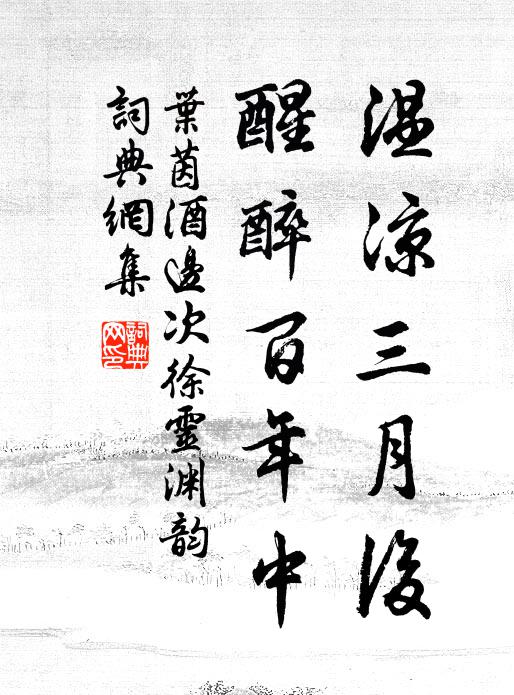 温涼三月後
醒醉百年中
葉茵酒邊次徐靈渊韵
詞典網集
詞典网印